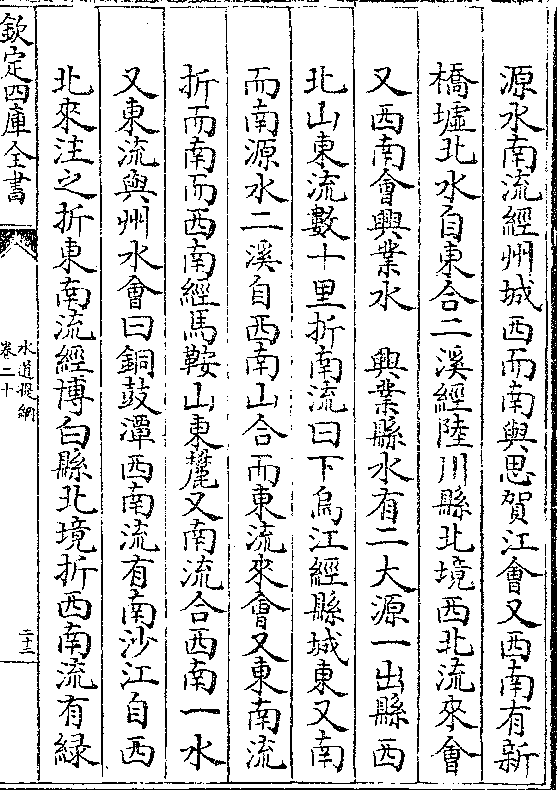 源水南流經州城西而南與思賀江會又西南有新
橋墟北水自東合二溪經陸川縣北境西北流來會
又西南會興業水　興業縣水有二大源一出縣西
北山東流數十里折南流曰下烏江經縣城東又南
而南源水二溪自西南山合而東流來會又東南流
折而南而西南經馬鞍山東麓又南流合西南一水
又東流與州水會曰銅鼓潭西南流有南沙江自西
北來注之折東南流經博白縣北境折西南流有綠
欽定四庫全書
水道提綱
卷二十
二十三